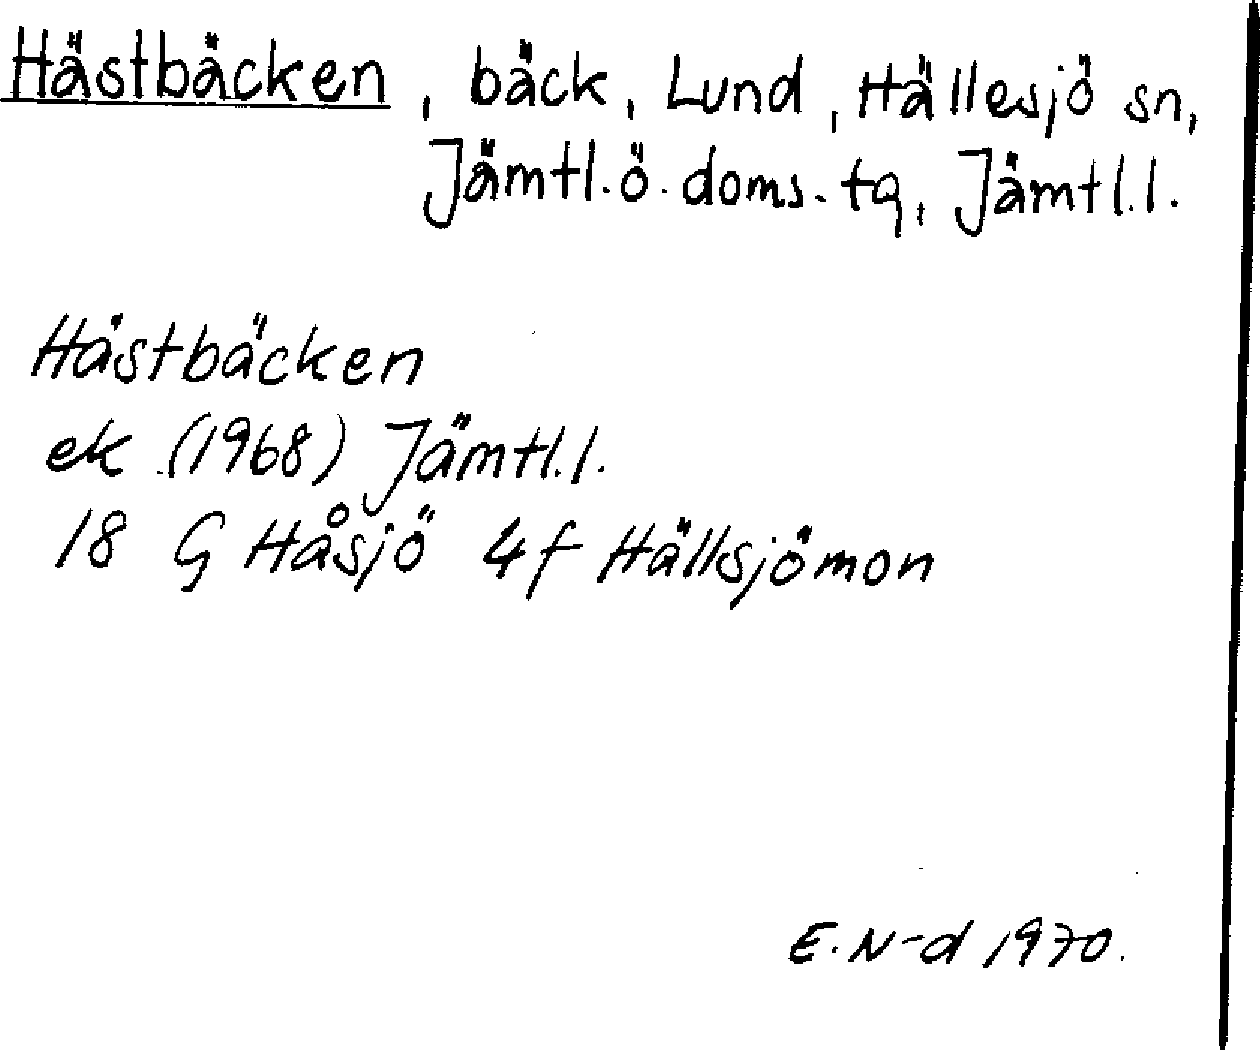 Hästbäcken, bäck, Lund, Hällesjö sn,
Jämtl. ö. doms. tg, Jämtl. l.
Hästbäcken
ek (1968) Jämtl. l.
18 G Håsjö 4f Hällsjömon
E. N-d 1970.